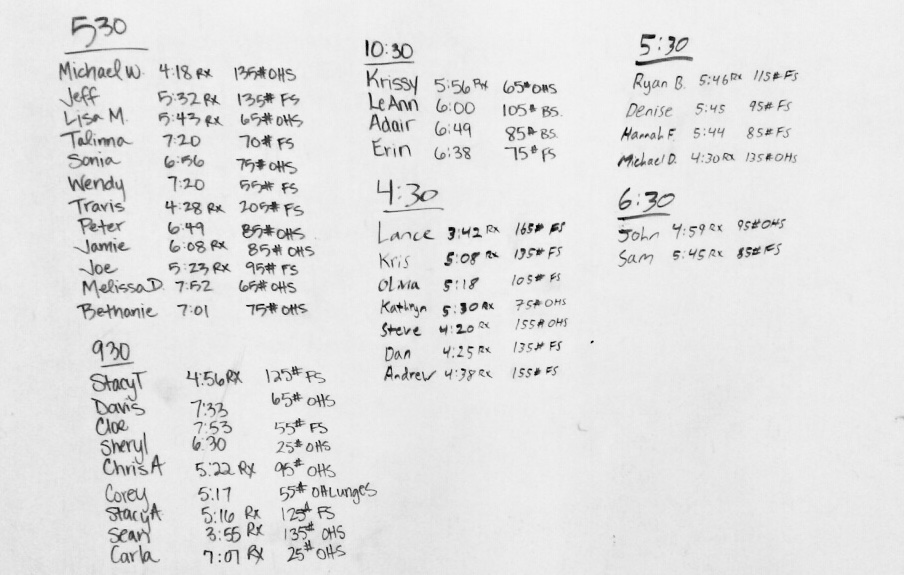 530
Michael W. 4:18 Rx 135# OHS
Jeff 5:32 Rx 135# FS
Lisa M. 5:43 Rx 65# OHS
Talinna 7:20 70# FS
Sonia 6:56 75# OHS
Wendy 7:20 55# FS
Travis 4:28 Rx 205# FS
Peter 6:49 85# OHS
Jamie 6:08 Rx 85# OHS
Joe 5:23 Rx 95# FS
Melissa D. 7:52 65# OHS
Bethanie 7:01 75# OHS
930
Stacy T 4:56 Rx 125# FS
Davis 7:33 65# OHS
Cloe 7:53 55# FS
Sheryl 6:30 25# OHS
Chris A 5:22 Rx 95# OHS
Corey 5:17 55# OHLunges
Stacy A 5:16 Rx 125# FS
Sean 3:55 Rx 135# OHS
Carla 7:07 Rx 25# OHS
10:30
Krissy 5:56 Rx 65# OHS
LeAnn 6:00 105# BS.
Adair 6:49 85# BS.
Erin 6:38 75# FS
4:30
Lance 3:42 Rx 165# FS
Kris 5:08 Rx 135# FS
Olivia 5:18 105# FS
Kathryn 5:30 Rx 75# OHS
Steve 4:20 Rx 155# OHS
Dan 4:25 Rx 135# FS
Andrew 4:38 Rx 155# FS
5:30
Ryan B. 5:46 Rx 115# FS
Denise 5:45 95# FS
Hannah F. 5:44 85# FS
Michael D. 4:30 Rx 135# OHS
6:30
John 4:59 Rx 95# OHS
Sam 5:45 Rx 85# FS